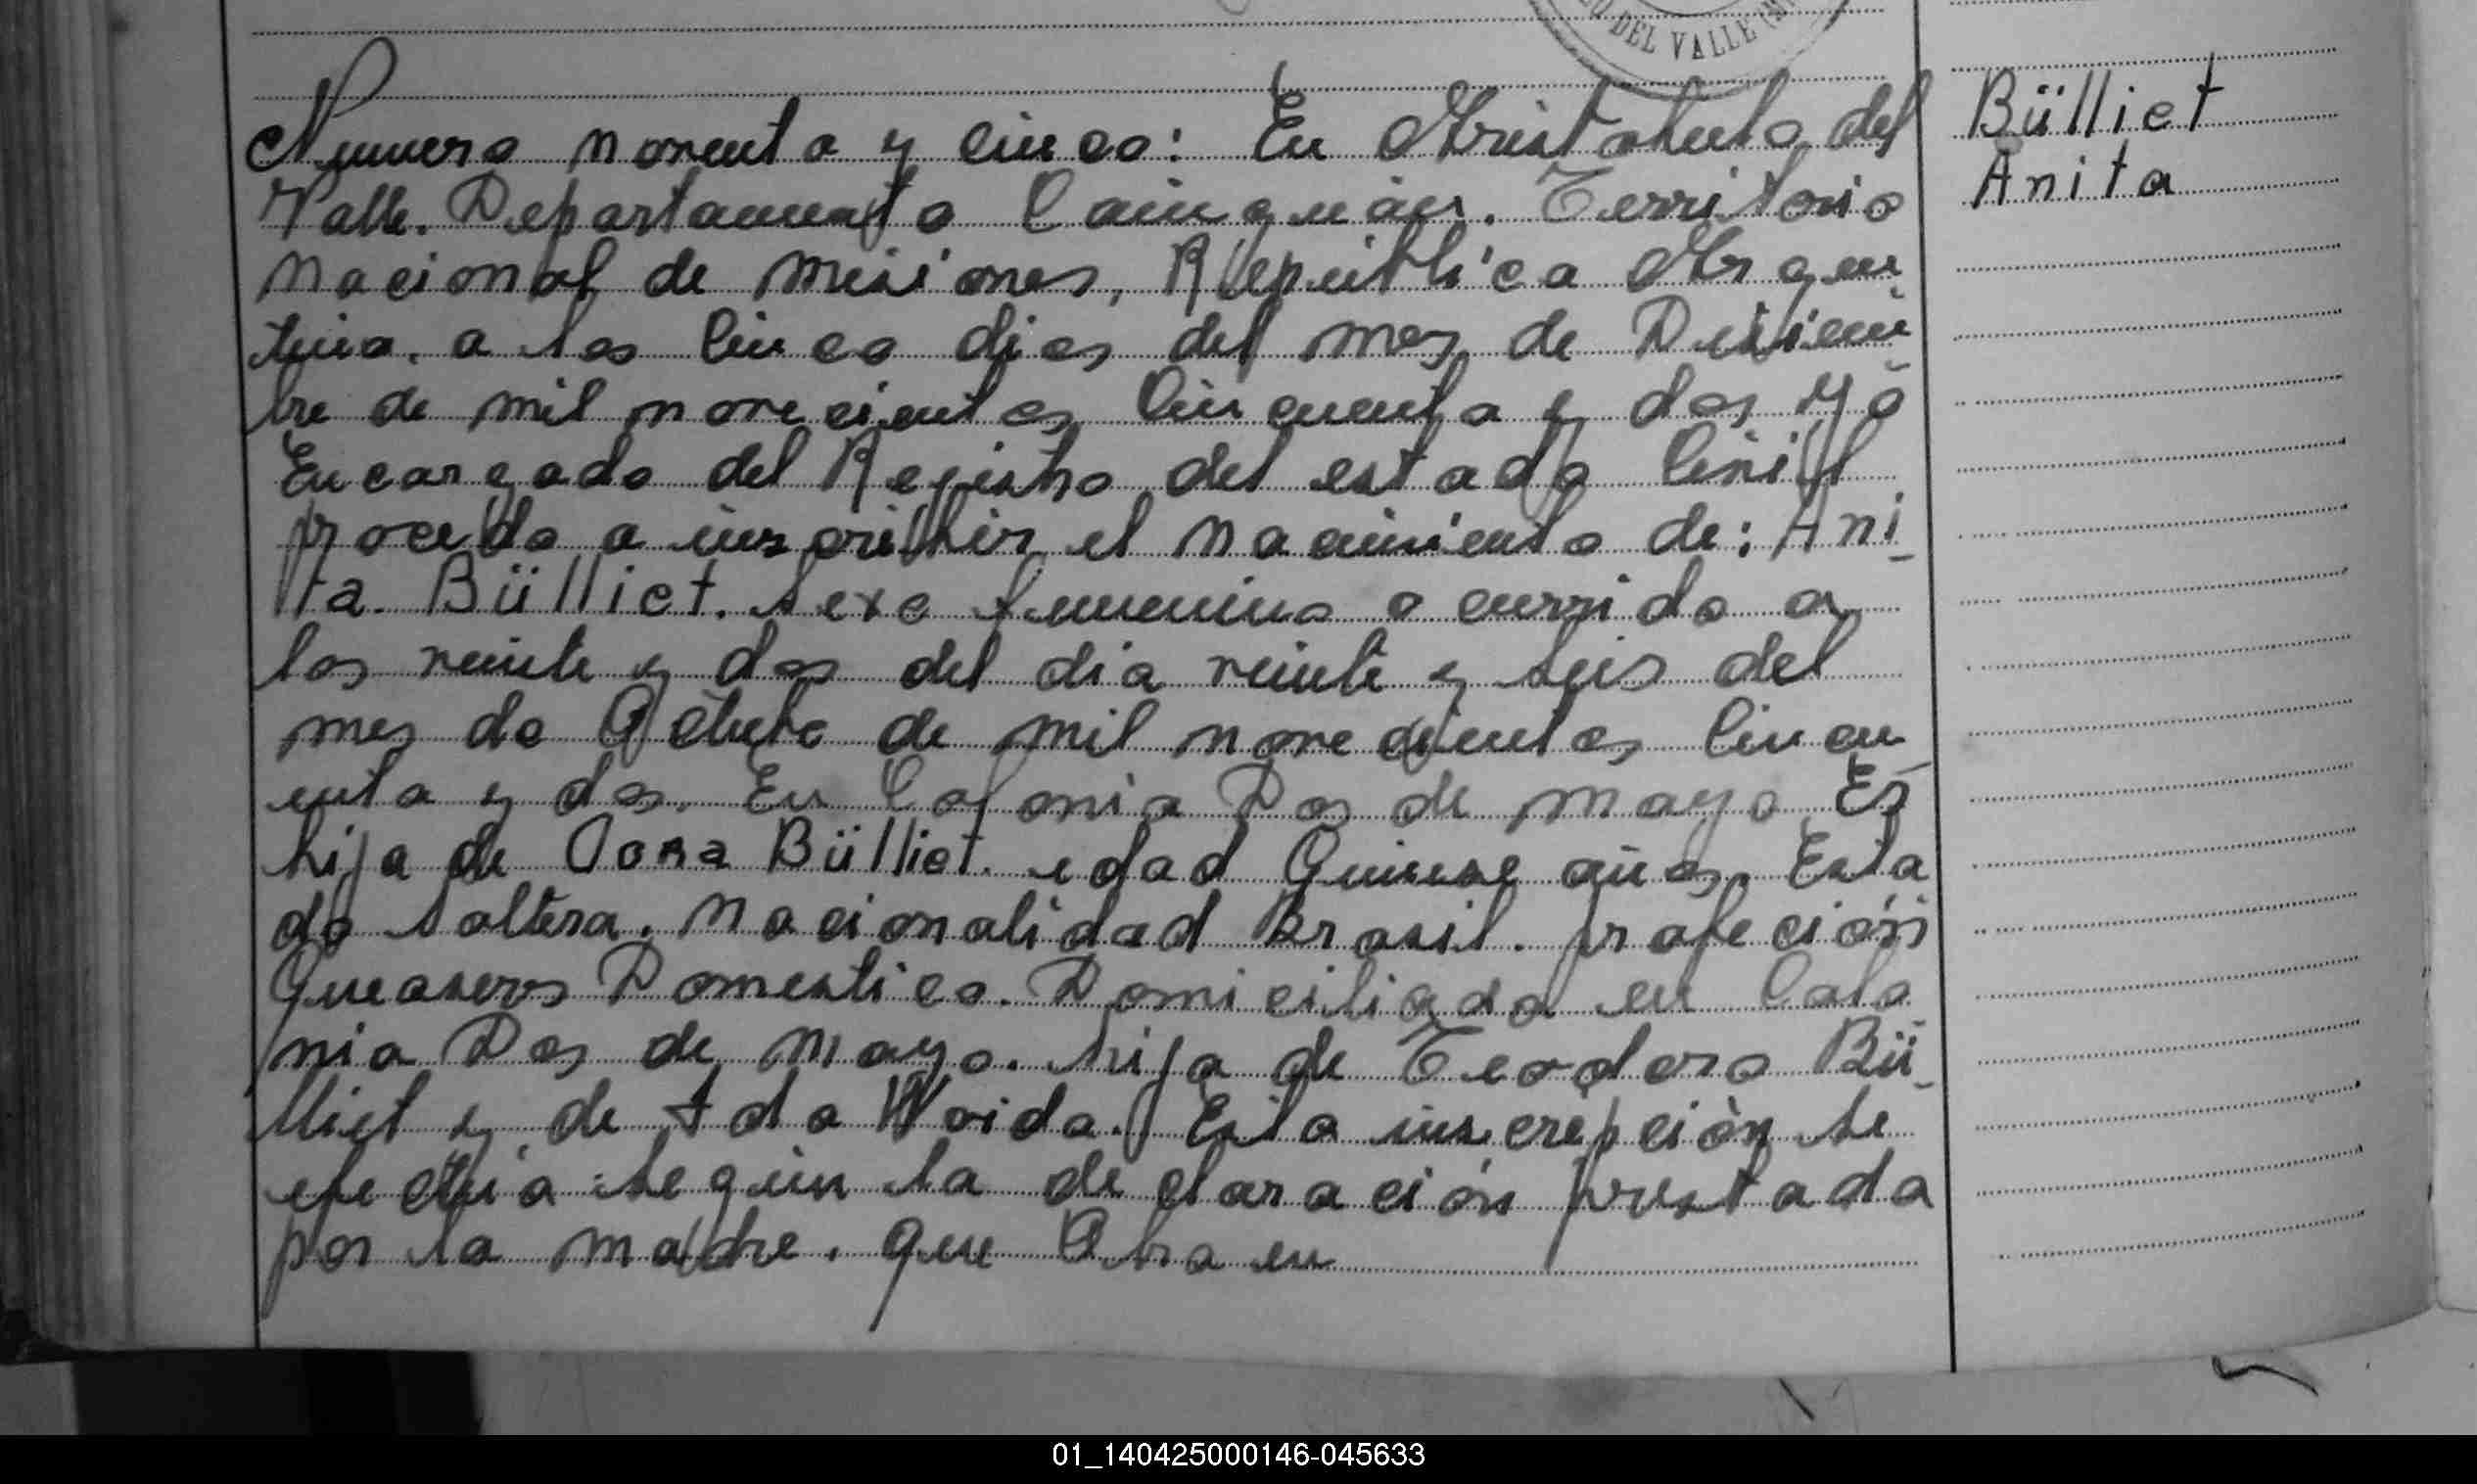 DEL VALLE
Numero noventa y cinco: En Aristobulo del
Valle. Departamento Cainguás. Territorio
Nacional de Misiones, República Argen
tina. a los Cinco dias del mes de Disiem
bre de mil novecientos Cincuenta y dos Yó
Encargado del Registro del estado Civil
procedo a inscribir el Nacimiento de: Ani_
ta. Bülliet. Sexo femenino ocurrido a
las veinte y dos del dia veinte y seis del
mes de Octubre de mil novecientos Cincu
enta y dos. En Colonia Dos de Mayo Es
hija de Bülliet. edad Quinse años. Esta
do soltera. Nacionalidad Brasil. profeción
Queaseres Domestico. Domiciliada en Colo
nia Dos de Mayo. hija de Teodoro Bü_
lliet y de Ida Woida. Esta inscrepción se
efectúa según la declaración prestada
por la madre. que Obra en
Bülliet
Anita
01_140425000146-045633